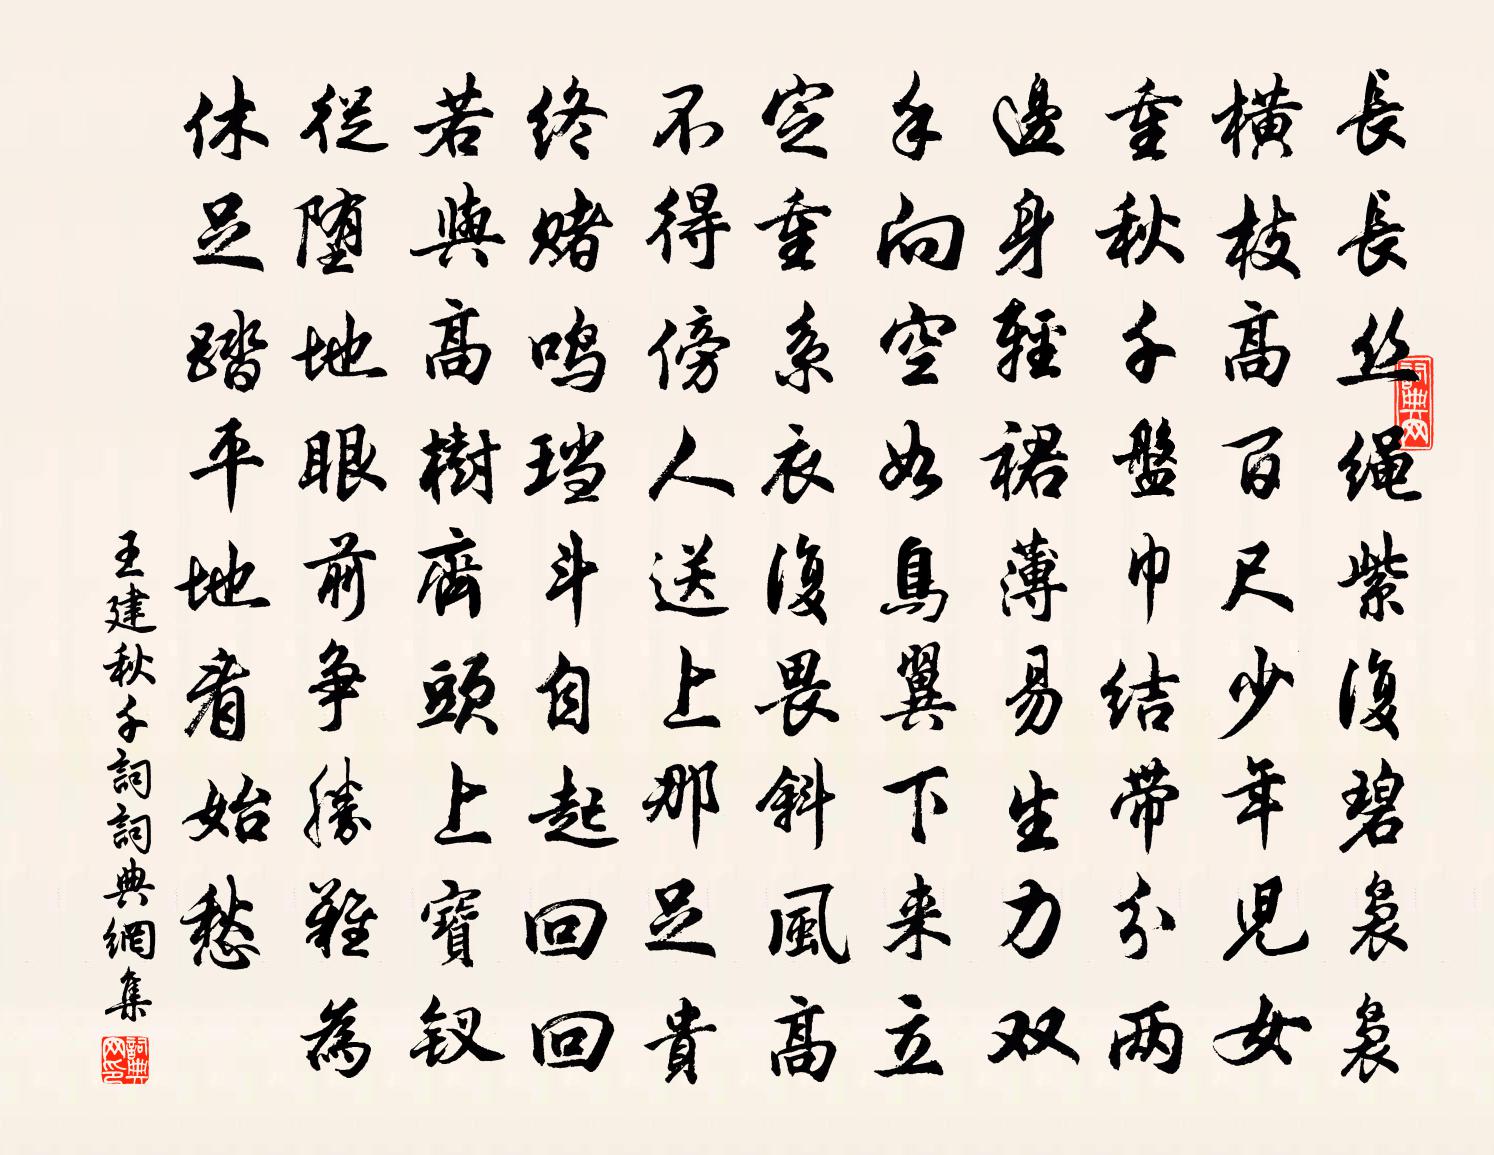 長長丝绳紫復碧袅袅
横枝高百尺少年児女
重秋千盤巾结带分两
邊身輕裙薄易生力双
手向空如鳥翼下来立
定重系衣復畏斜風高
不得傍人送上那足貴
终赌鸣珰斗自起回回
若與高樹齊頭上寶钗
從堕地眼前争勝難為
休足踏平地看始愁
王建秋千詞詞典網集
詞典网
詞典网印